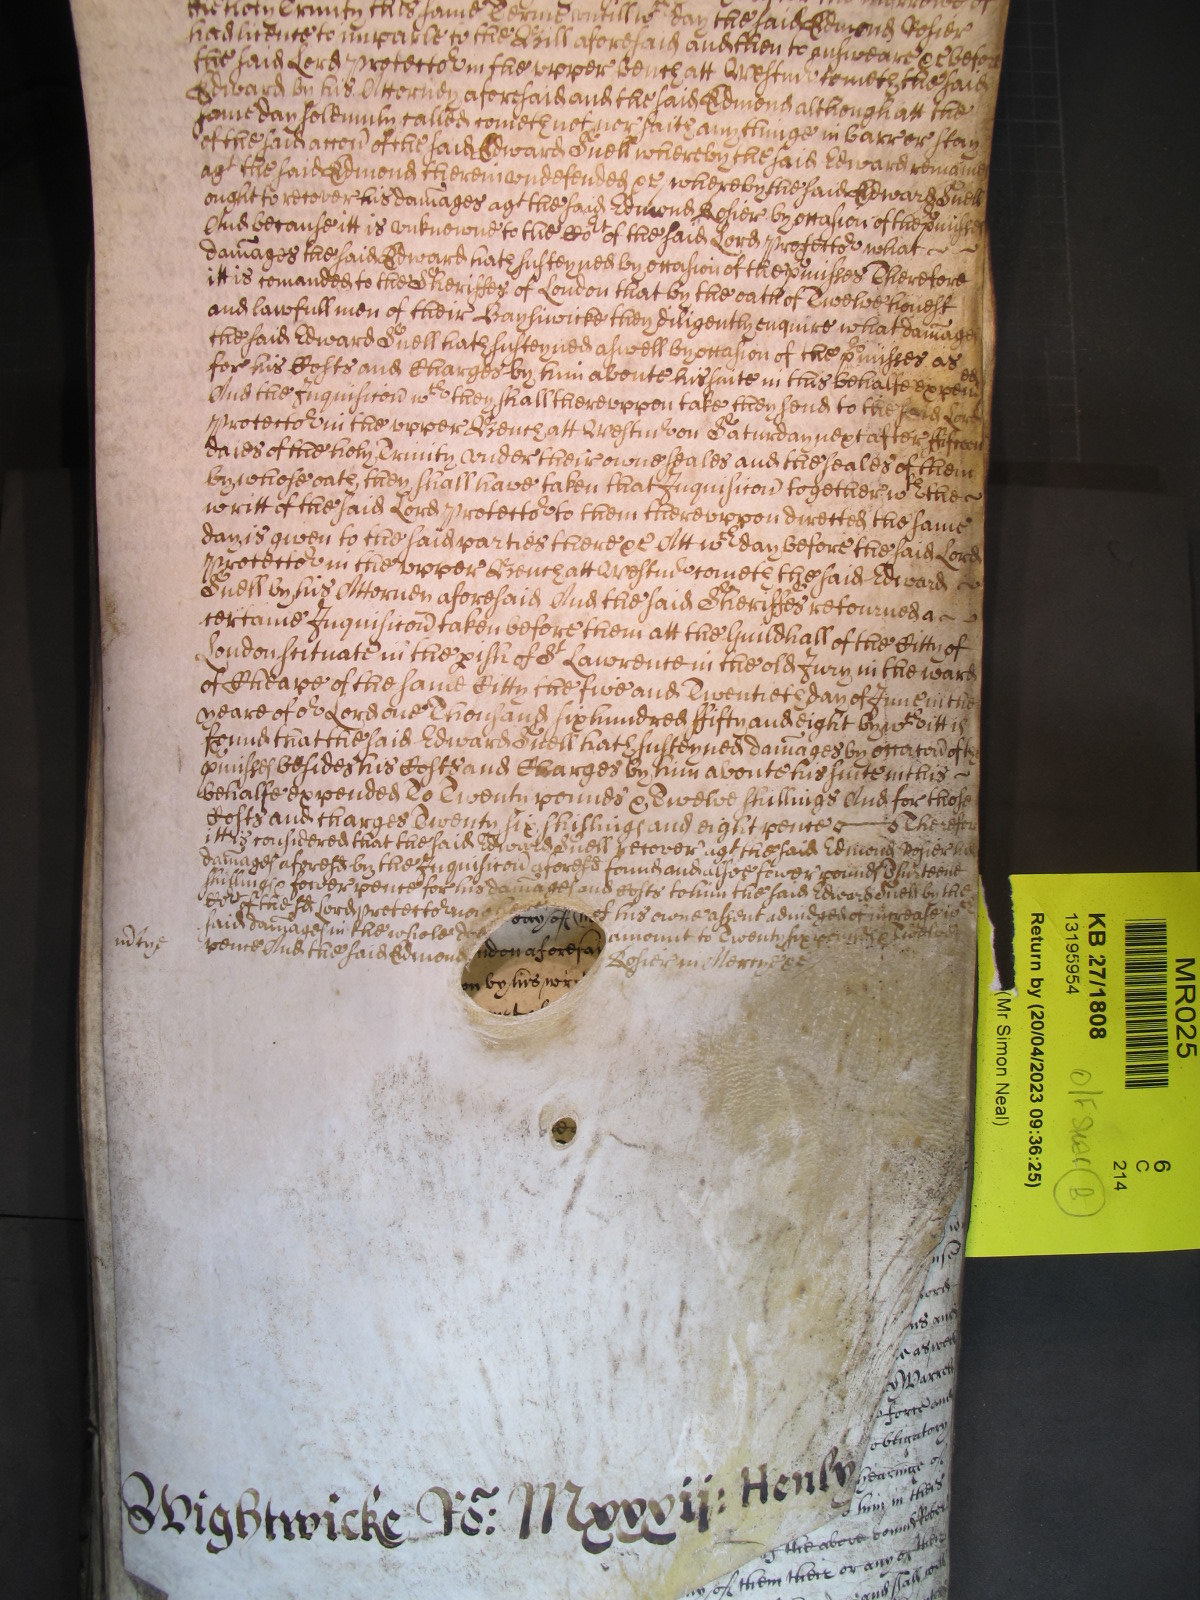 the holy Trinity this same Terme untill wch day the said Edmond Rosier
had licence to imparle to the Bill aforesaid and then to answeare &c before
the said Lord Protector in the upper Bench att Westmr cometh the said
Edward by his Attorney aforesaid and the said Edmond although att the
same day solemnly called cometh not nor saith any thinge in barr or stay
of the said accon of the said Edward Snell whereby the said Edward remaines
agt the said Edmond therein undefended &c whereby the said Edward Snell
ought to recover his damages agt the said Edmond Rosier by occasion of the pmisses
And because itt is unknowne to the Cort of the said Lord Protector what
damages the said Edward hath susteyned by occasion of the pmisses Therefore
itt is comanded to the Sheriffes of London that by the oath of Twelve honest
and lawfull men of their Baysiwicke they diligently enquire what damages
the said Edward Snell hath susteyned aswell by occasion of the pmisses as
for his Costs and Charges by him aboute his suite in this behalfe expended
And the Inquisicon wch they shall thereuppon take they send to the said Lord
Protector in the upper Bench att Westmr on Saturday next after fifteen
daies of the holy Trinity under their owne seales and the seales of them
by whose oath they shall have taken that Inquisicon together wth the
writt of the said Lord Protector to them thereuppon directed the same
day is given to the said parties there &c Att wch day before the said Lord
Protector in the upper Bench att Westmr cometh the said Edward
Snell by his Attorney aforesaid And the said Sheriffes returned a
certaine Inquisicon taken before them att the Guildhall of the Citty of
London scituate in the pish of St Lawrence in the old Jury in the ward
of Cheape of the same Citty the five and Twentieth day of June in the
yeare of or Lord one Thousand six hundred fifty and eight by wch itt is
found that the said Edward Snell hath susteyned damages by occasion of the
pmisses besides his Costs and Charges by him aboute his suite in this
behalfe expended To Twenty pounds & Twelve shillings And for those
Costs and charges Twenty six shillings and eight pence Therefore
itt is considered that the said Edward Snell recover agt the said Edmond Rosier his
damages aforesd by the Inquisicon aforesd found and alsoe fower pounds
shillings fower pence for his damages and costs to him the said Edward Snell by the
Cort of the sd Lord Protector now his owne assent adiudged of increase wch
said damages in the whole doe amount to Twenty six pounds
pence And the said Edmond Rosier in Mercy &c
eay of
ndon aforesai
on by his wri
Wightwicke Ro: Mxxxij: Henly
MR025
6
C
214
KB 27/1808
13195954
Return by (20/04/2023 09:36:25)
(Mr Simon Neal)
B
ord
ns and
e aswell
Warren
force and
obligatory
yearinge of
him in theis
of the above bounden
of them their or any of their
and shall well